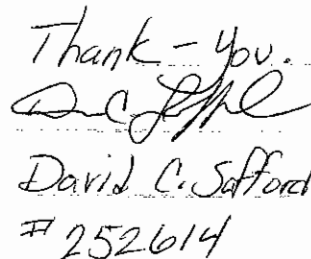 Thank-you.
David C. Safford
# 252614